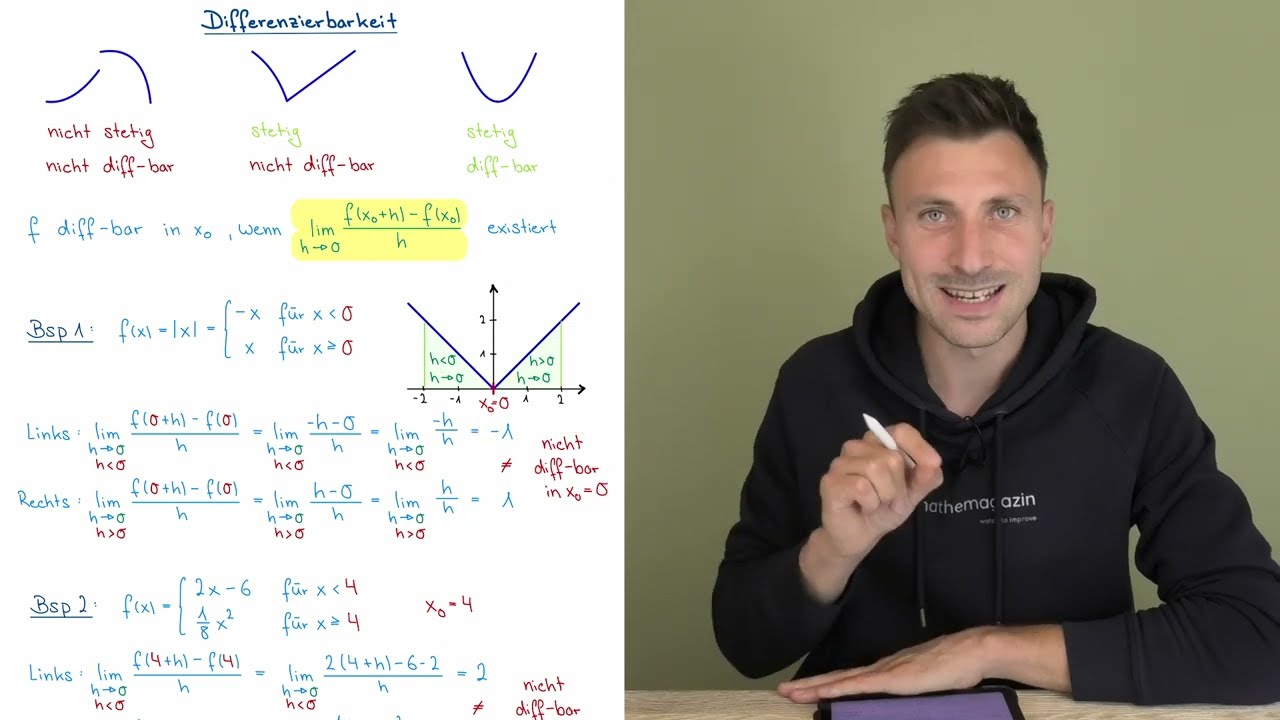 Differenzierbarkeit
nicht stetig stetig stetig
nicht diff-bar nicht diff-bar diff-bar
f diff-bar in x₀, wenn lim h→0 (f(x₀+h) − f(x₀))/h existiert
Bsp 1: f(x) = |x| = { −x für x < 0
x für x ≥ 0
2
1
h<0 h>0
h→0 h→0
-2 -1 1 2
x₀=0
Links: lim h→0 h<0 (f(0+h) − f(0))/h = lim h→0 h<0 (−h−0)/h = lim h→0 h<0 −h/h = −1
≠ nicht diff-bar in x₀=0
Rechts: lim h→0 h>0 (f(0+h) − f(0))/h = lim h→0 h>0 (h−0)/h = lim h→0 h>0 h/h = 1
Bsp 2: f(x) = { 2x − 6 für x < 4
1/8 x² für x ≥ 4
x₀ = 4
Links: lim h→0 h<0 (f(4+h) − f(4))/h = lim h→0 h<0 (2(4+h)−6−2)/h = 2
≠ nicht diff-bar
mathemagazin